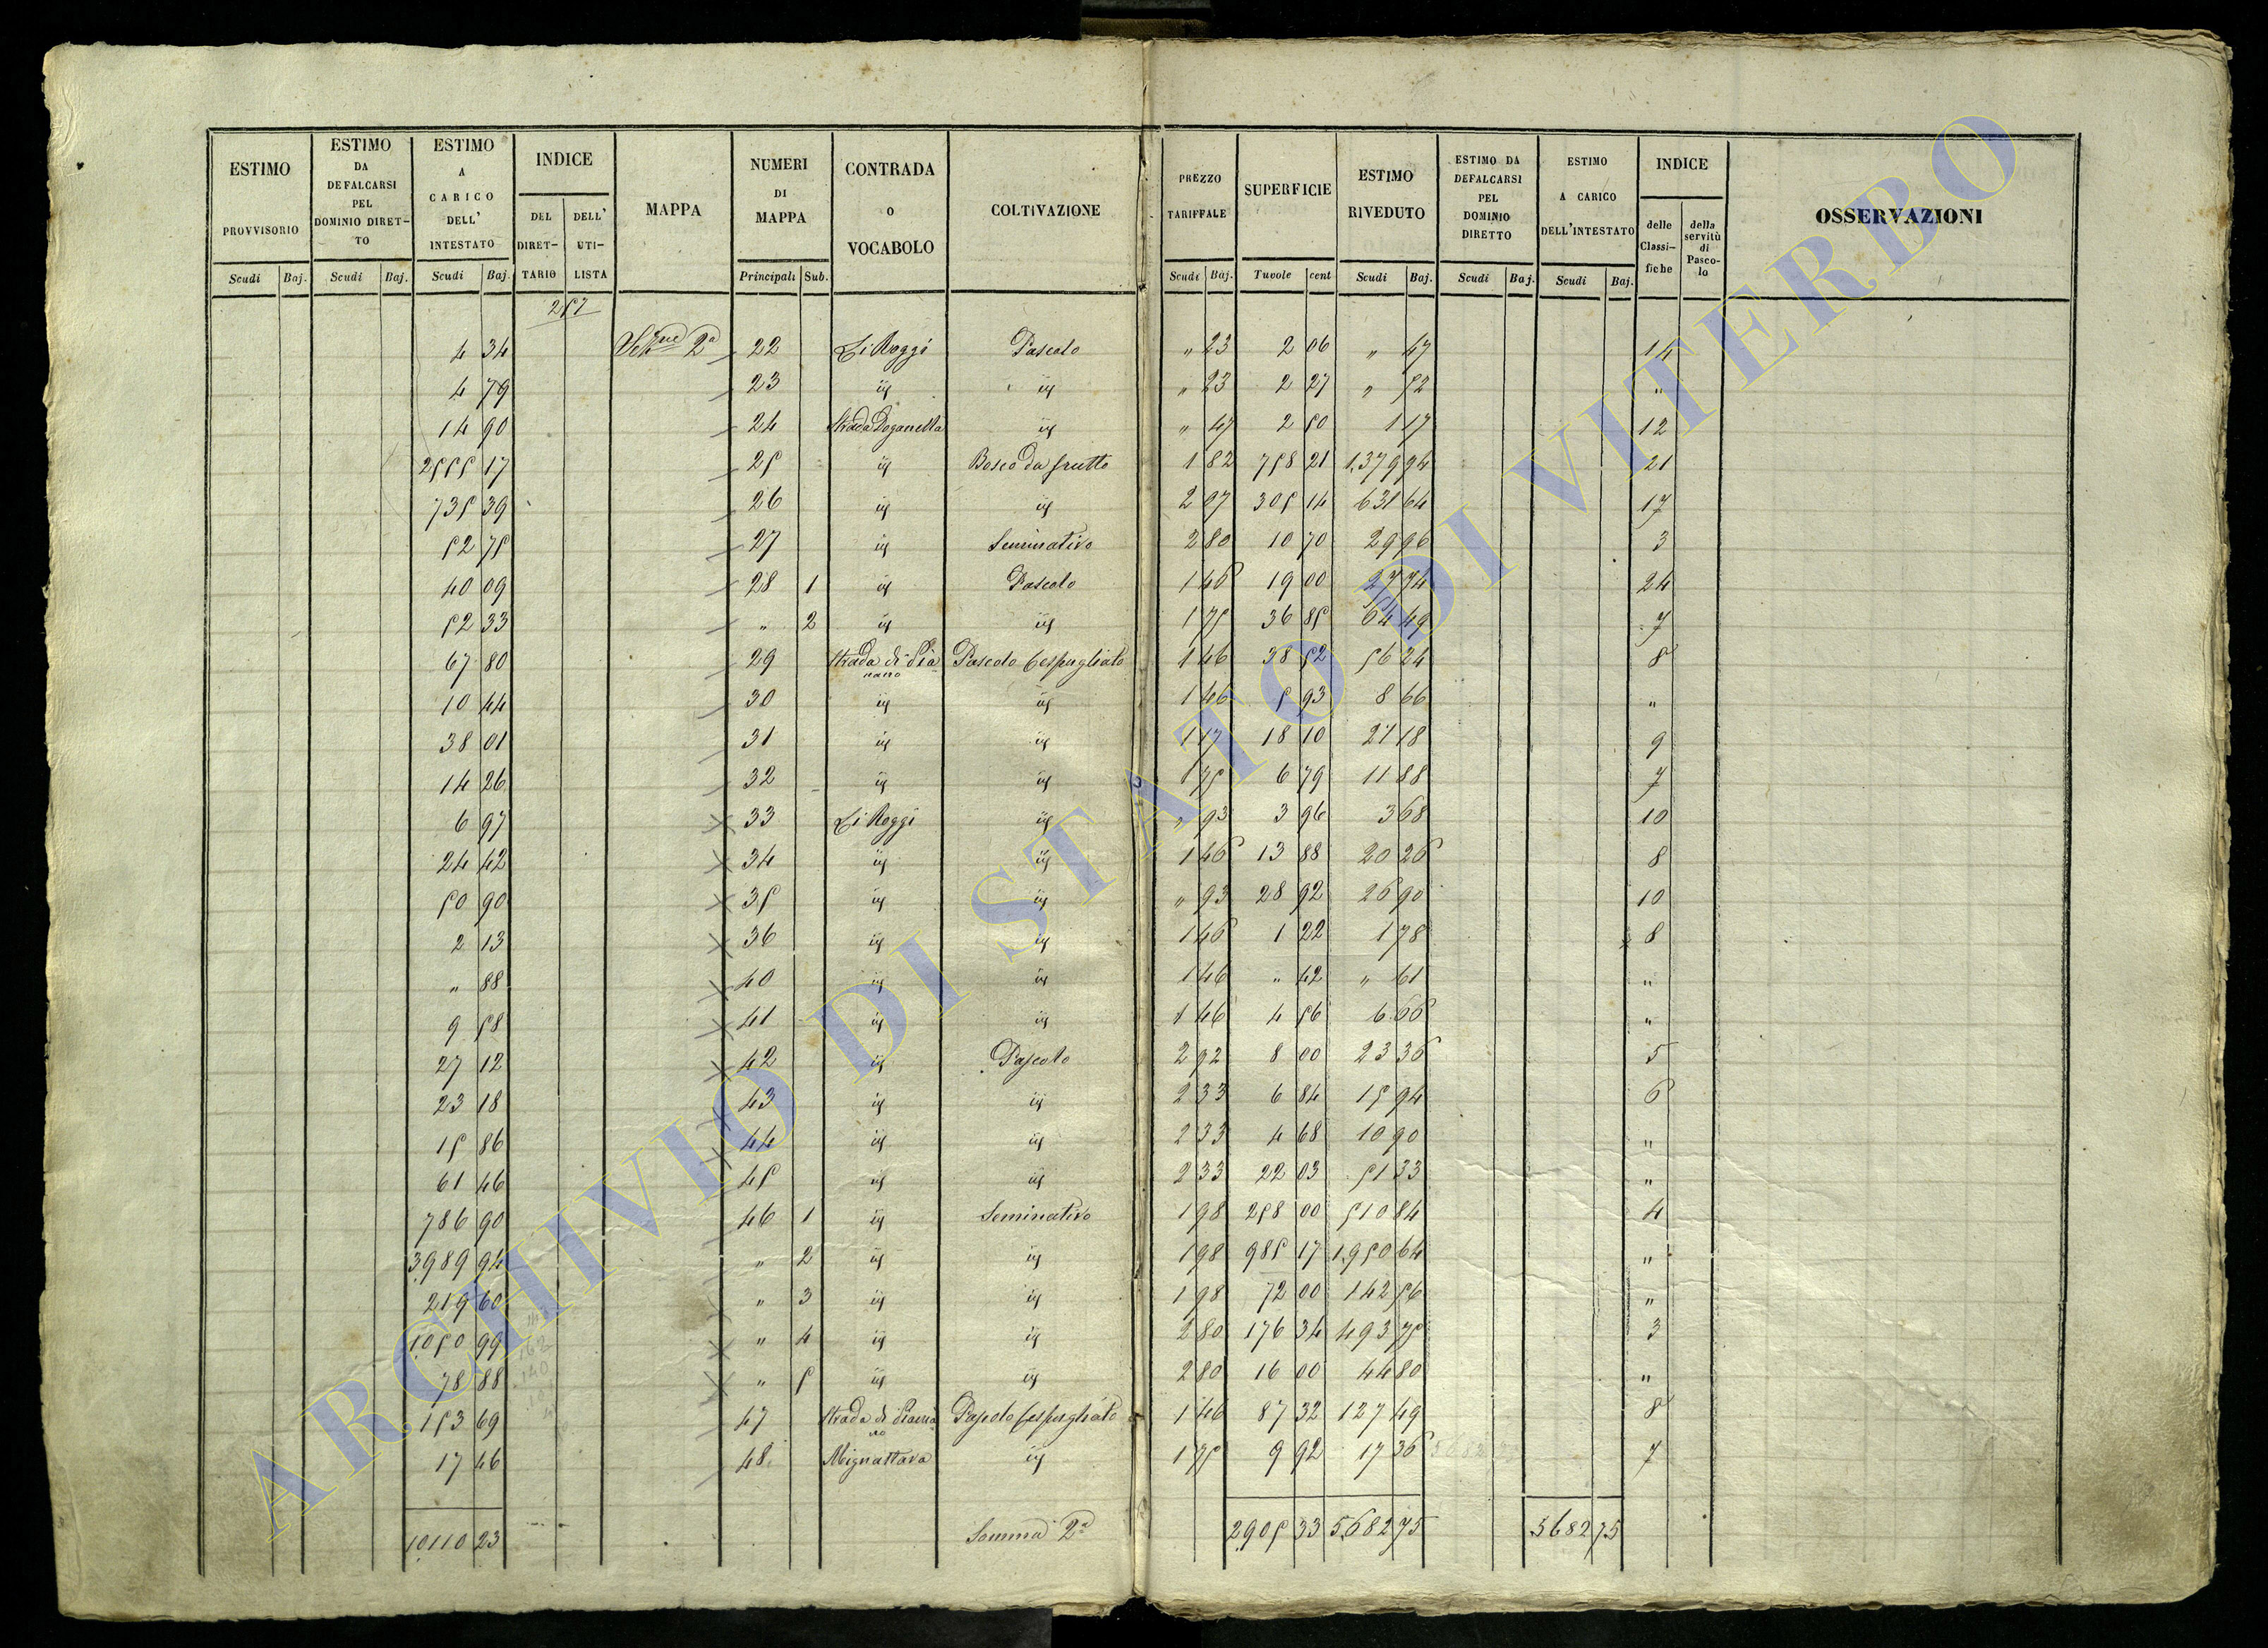 ESTIMO PROVVISORIO | ESTIMO DA DEFALCARSI PEL DOMINIO DIRET-TO | ESTIMO A CARICO DELL' INTESTATO | INDICE DEL DIRET-TARIO | DELL' UTI-LISTA | MAPPA | NUMERI DI MAPPA | CONTRADA o VOCABOLO | COLTIVAZIONE | PREZZO TARIFFALE | SUPERFICIE | ESTIMO RIVEDUTO | ESTIMO DA DEFALCARSI PEL DOMINIO DIRETTO | ESTIMO A CARICO DELL'INTESTATO | INDICE delle Classi-fiche | della servitù di Pasco-lo | OSSERVAZIONI
Scudi Baj. | Scudi Baj. | Scudi Baj. | Principali Sub. | Scudi Baj. | Tavole cent | Scudi Baj. | Scudi Baj. | Scudi Baj.
257
4 34 | 2ª | 22 | Li Roggi | Pascolo | " 23 | 2 06 | " 47 | 14
4 79 | 23 | id | id | " 23 | 2 27 | " 52 | "
14 90 | 24 | Strada Doganella | id | " 47 | 2 50 | 1 17 | 12
2555 17 | 25 | id | Bosco da frutto | 1 82 | 758 21 | 1,379 94 | 21
735 39 | 26 | id | id | 2 07 | 305 14 | 631 64 | 17
52 75 | 27 | id | Seminativo | 2 80 | 10 70 | 29 96 | 3
40 09 | 28 | 1 | id | Pascolo | 1 46 | 19 00 | 27 74 | 24
52 33 | " | 2 | id | id | 1 75 | 36 85 | 64 49 | 7
67 80 | 29 | Strada di Pianano | Pascolo Cespugliato | 1 46 | 38 52 | 56 24 | 8
10 44 | 30 | id | id | 1 46 | 5 93 | 8 66 | "
38 01 | 31 | id | id | 1 17 | 18 10 | 21 18 | 9
14 26 | 32 | id | id | 1 75 | 6 79 | 11 88 | 7
6 97 | 33 | Li Roggi | id | " 93 | 3 96 | 3 68 | 10
24 42 | 34 | id | id | 1 46 | 13 88 | 20 26 | 8
50 90 | 35 | id | id | " 93 | 28 92 | 26 90 | 10
2 13 | 36 | id | id | 1 46 | 1 22 | 1 78 | 8
" 88 | 40 | id | id | 1 46 | " 42 | " 61 | "
9 58 | 41 | id | id | 1 46 | 4 56 | 6 66 | "
27 12 | 42 | id | Pascolo | 2 92 | 8 00 | 23 36 | 5
23 18 | 43 | id | id | 2 33 | 6 84 | 15 94 | 6
15 86 | 44 | id | id | 2 33 | 4 68 | 10 90 | "
61 46 | 45 | id | id | 2 33 | 22 03 | 51 33 | "
786 90 | 46 | 1 | id | Seminativo | 1 98 | 258 00 | 510 84 | 4
3,989 94 | " | 2 | id | id | 1 98 | 985 17 | 1,950 64 | "
219 60 | " | 3 | id | id | 1 98 | 72 00 | 142 56 | "
1,050 99 | " | 4 | id | id | 2 80 | 176 34 | 493 75 | 3
78 88 | " | 5 | id | id | 2 80 | 16 00 | 44 80 | "
153 69 | 47 | Strada di Pianano | Pascolo Cespugliato | 1 46 | 87 32 | 127 49 | 8
17 46 | 48 | Mignattara | id | 1 75 | 9 92 | 17 36 | 7
10,110 23 | Somma 2ª | 2,905 33 | 5,682 75 | 5682 75
ARCHIVIO DI STATO DI VITERBO